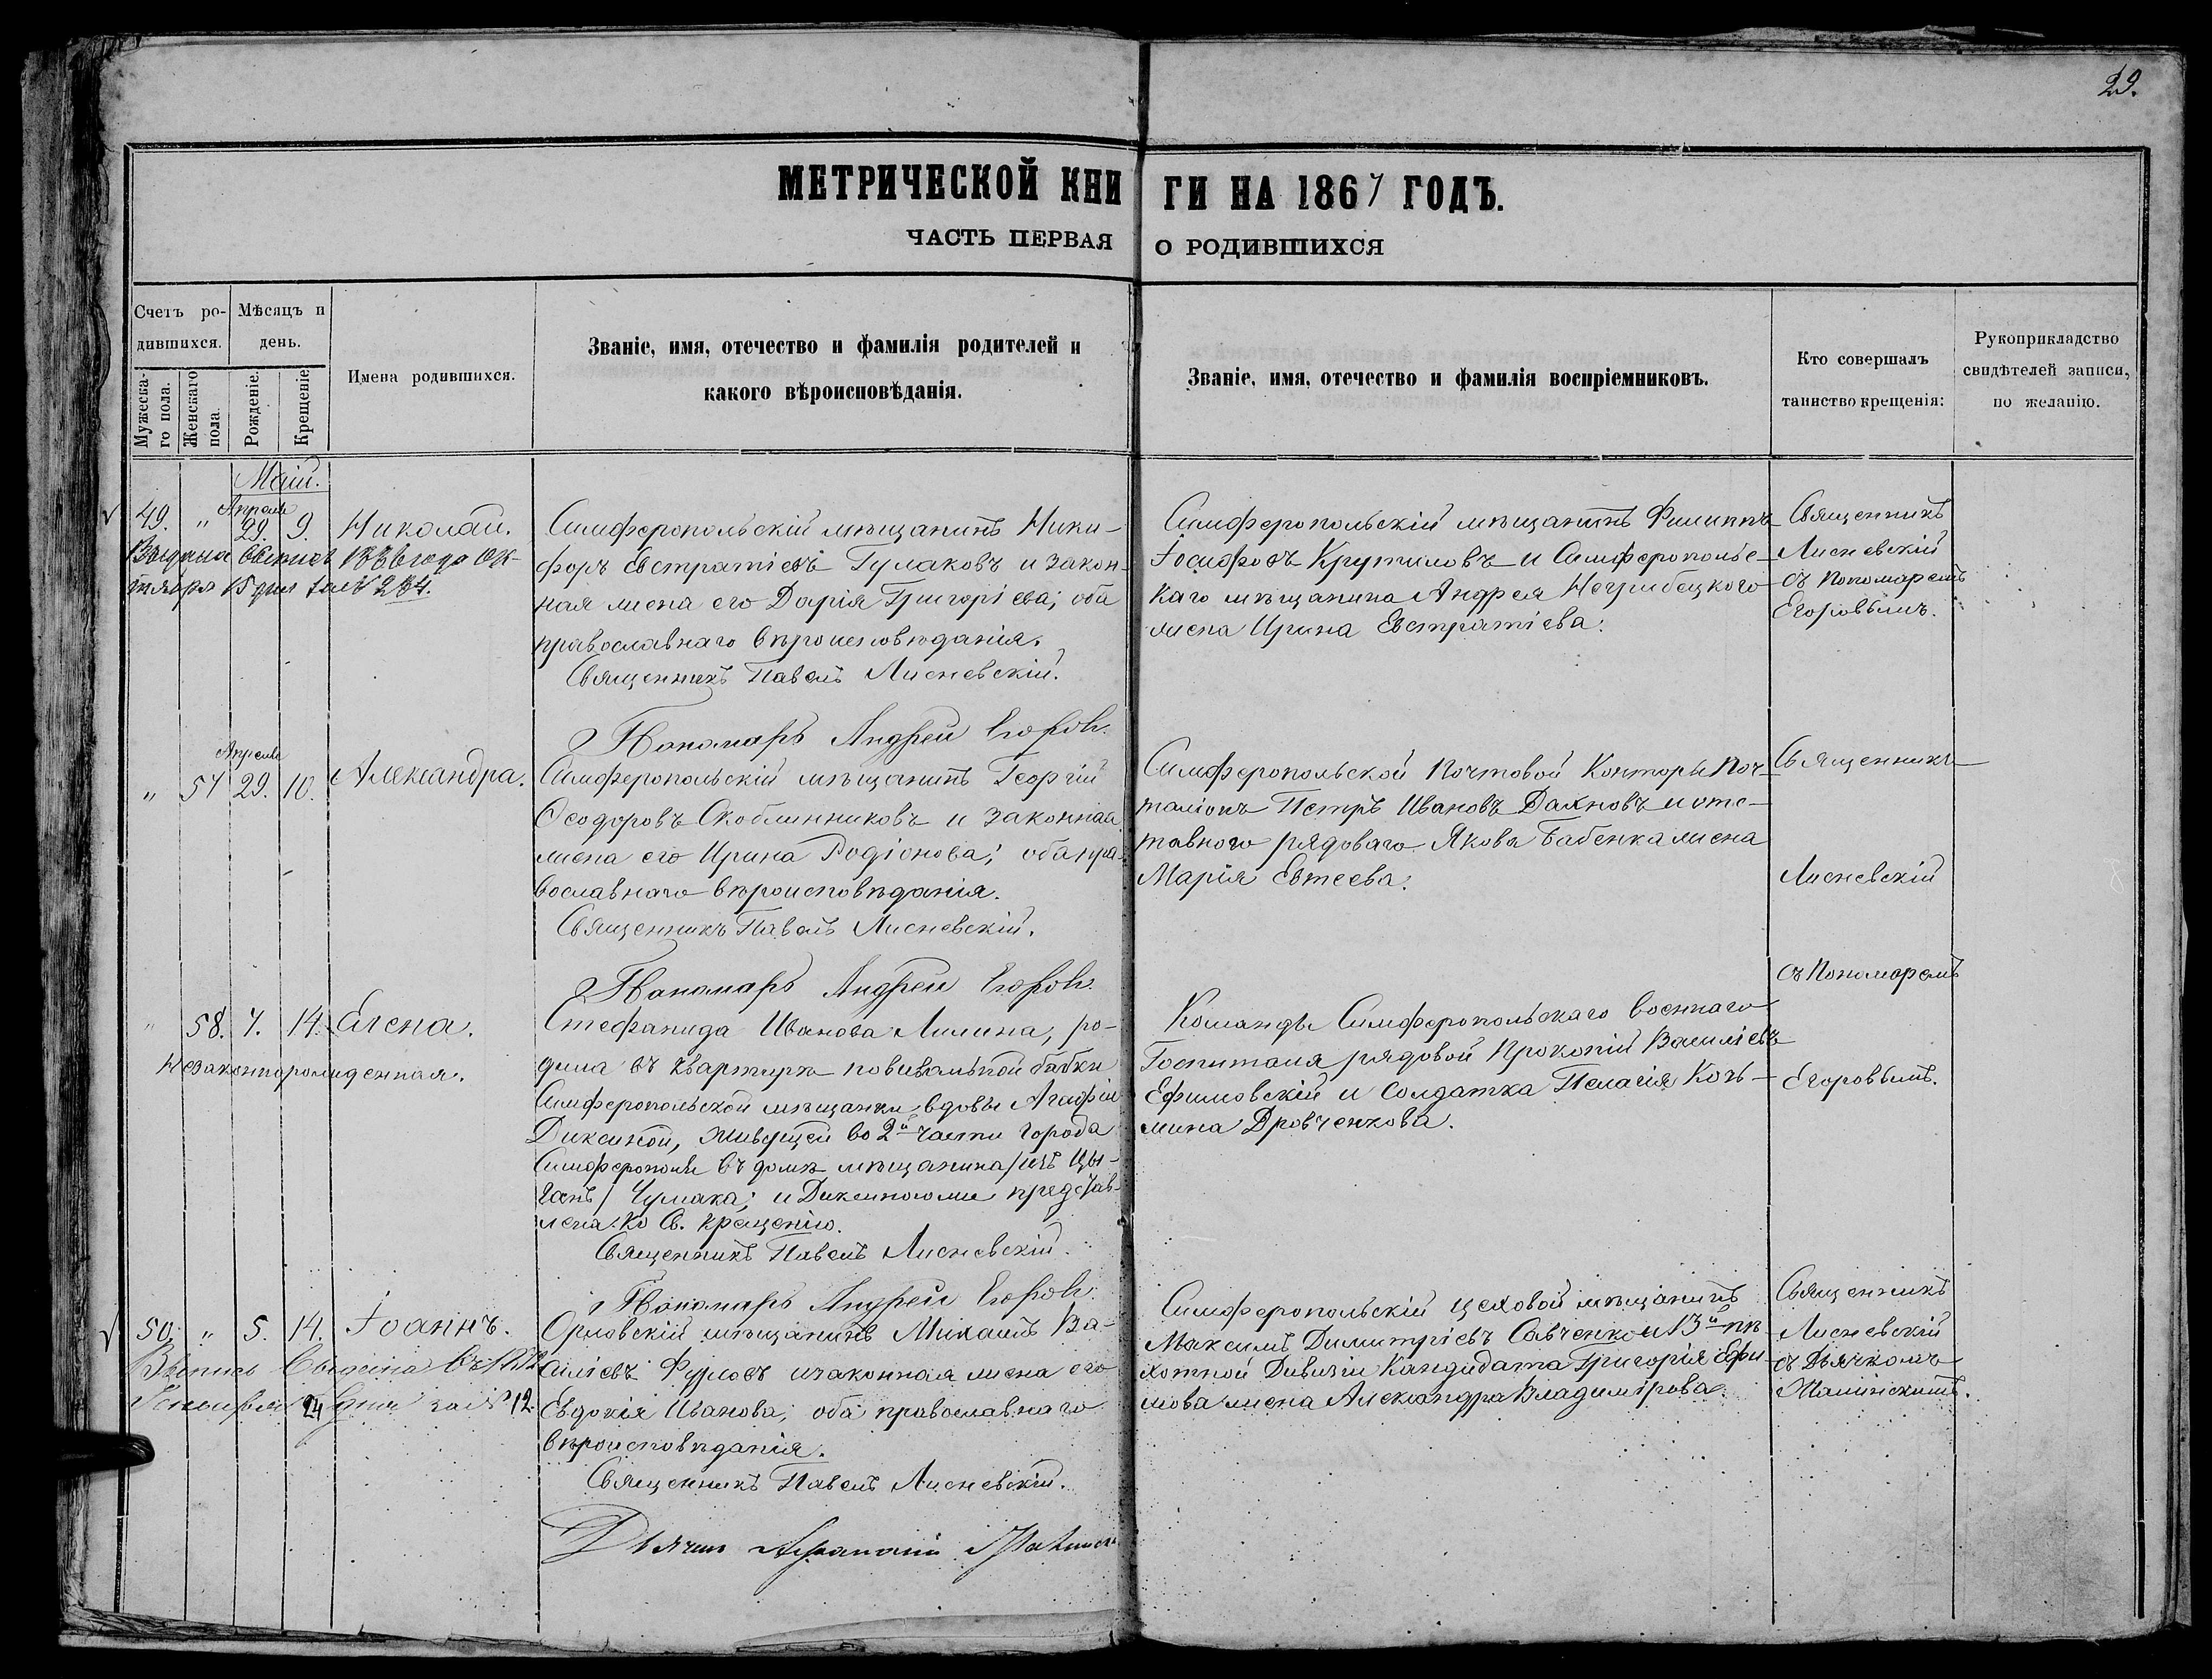 29.
МЕТРИЧЕСКОЙ КНИГИ НА 1867 ГОДЪ.
ЧАСТЬ ПЕРВАЯ О РОДИВШИХСЯ
Счетъ родившихся.
Мужескаго пола.
Женскаго пола.
Мѣсяцъ и день.
Рожденіе.
Крещеніе.
Имена родившихся.
Званіе, имя, отечество и фамилія родителей и
какого вѣроисповѣданія.
Званіе, имя, отечество и фамилія воспріемниковъ.
Кто совершалъ
таинство крещенія:
Рукоприкладство
свидѣтелей записи,
по желанію.
Маій.
Апреля
49. „ 29. 9. Николай.
15 дня за № 284.
Симферопольскій мѣщанинъ Ники-
форъ Евстратіевъ Гулаковъ и закон-
ная жена его Дарія Григоріева; оба
православнаго вѣроисповѣданія.
Священникъ Павелъ Лисневскій.
Пономарь Андрей Егоровъ.
Симферопольскій мѣщанинъ Филиппъ
Іосифовъ Крутиловъ и Симферопольс-
каго мѣщанина Андрея Негрибецкого
жена Ирина Евстратіева.
Священникъ
Лисневскій
съ Пономаремъ
Егоровымъ.
Апреля
„ 57 29. 10. Александра.
Симферопольскій мѣщанинъ Георгій
Ѳеодоровъ Скоблинниковъ и законная
жена его Ирина Родіонова; оба пра-
вославнаго вѣроисповѣданія.
Священникъ Павелъ Лисневскій.
Пономарь Андрей Егоровъ.
Симферопольской Почтовой Конторы Поч-
таліонъ Петръ Ивановъ Дахновъ и отс-
тавного рядоваго Якова Бабенка жена
Марія Евтеева.
Священникъ
Лисневскій
съ Пономаремъ
Егоровымъ.
„ 58. 7. 14. Елена.
Незаконнорожденная.
Стефанида Иванова Лилина, ро-
дила въ квартирѣ повивальной бабки
Симферопольской мѣщанки, вдовы Агафіи
Диксиной, живущей во 2й части города
Симферополя въ домѣ мѣщанина /изъ Цы-
ганъ/ Чумака; и Диксиною же представ-
лена ко Св. крещенію.
Священникъ Павелъ Лисневскій.
Пономарь Андрей Егоровъ.
Команды Симферопольскаго военнаго
Госпиталя рядовой Прокопій Васильевъ
Ефимовскій и солдатка Пелагія Козь-
мина Дровченкова.
50. „ 5. 14. Іоаннъ.
24 дня за № 12.
Орловскій мѣщанинъ Михаилъ Ва-
силіевъ Фурсовъ и законная жена его
Евдокія Иванова; оба православнаго
вѣроисповѣданія.
Священникъ Павелъ Лисневскій.
Симферопольскій цеховой мѣщанинъ
Максимъ Димитріевъ Савченко и 13й пѣ-
хотной Дивизіи Кандидата Григорія Ефи-
мова жена Александра Владимірова.
Священникъ
Лисневскій
съ Дьячкомъ